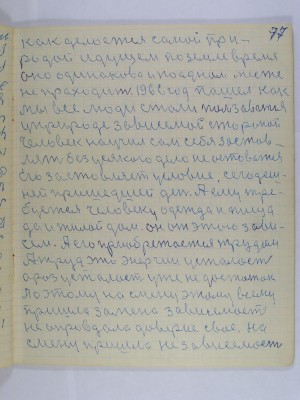 77
как делается самой при-
родой идущем по земле время
оно одинакова и поадном месте
не праходит. 1966 год пашел как
мы все люди стали
у природе зависемой старжой
человек научил сам себя застав-
лять без усякого дело не оставатся
его заставляет условие, сегодеш-
ней пришедшей ден. Аему тре-
буется человеку одежда и пища
да и жилой дом. он от этого зави-
сем. А ето приобретается трудом
Атруд это энергии усталость
араз усталост уже недостаток
поэтому на смену этому всему
пришла замена зависемост
не оправдала доверие свае. на
смену пришла не зависемост